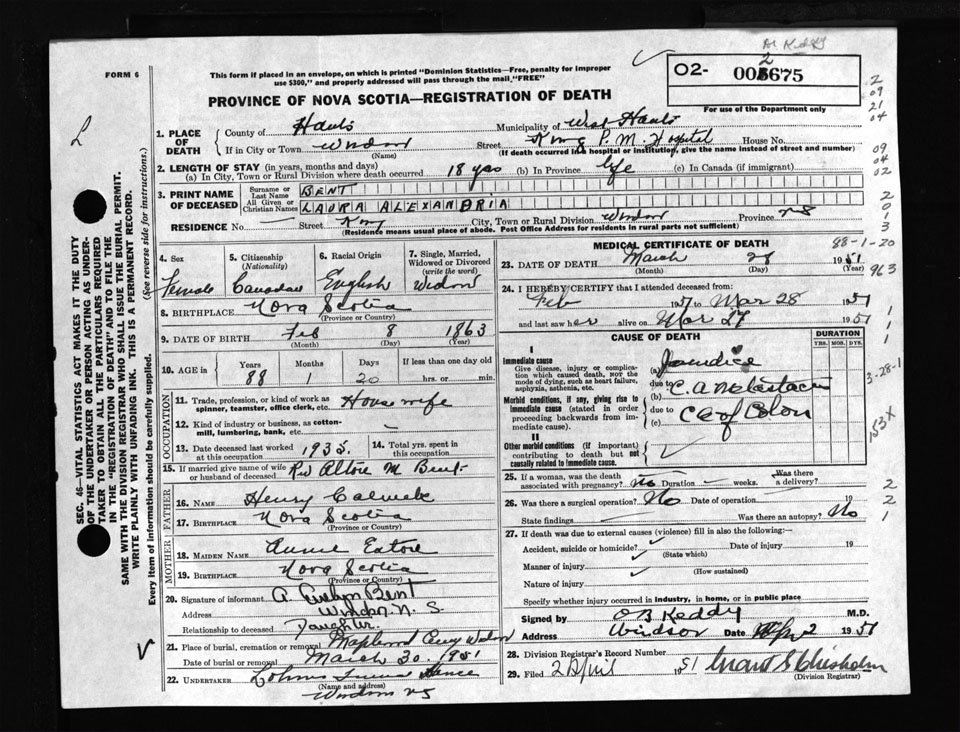 FORM 6
This form if placed in an envelope, on which is printed "Dominion Statistics—Free, penalty for improper
use $300," and properly addressed will pass through the mail, "FREE"
PROVINCE OF NOVA SCOTIA—REGISTRATION OF DEATH
Keddy
02- 002675
For use of the Department only
1. PLACE OF DEATH
County of Hants Municipality of West Hants
If in City or Town Windsor Street King P. M. Hospital House No.
(Name) (If death occurred in a hospital or institution, give the name instead of street and number)
2. LENGTH OF STAY (in years, months and days)
(a) In City, Town or Rural Division where death occurred 18 yrs (b) In Province life (c) In Canada (if immigrant)
3. PRINT NAME OF DECEASED
Surname or Last Name BENT
All Given or Christian Names LAURA ALEXANDRIA
RESIDENCE No. — Street King City, Town or Rural Division Windsor Province NS
(Residence means usual place of abede. Post Office Address for residents in rural parts not sufficient)
4. Sex Female
5. Citizenship (Nationality) Canadian
6. Racial Origin English
7. Single, Married, Widowed or Divorced (write the word) Widow
8. BIRTHPLACE Nova Scotia
(Province or Country)
9. DATE OF BIRTH Feb 8 1863
(Month) (Day) (Year)
10. AGE in Years 88 Months 1 Days 20 If less than one day old hrs. or min.
OCCUPATION
11. Trade, profession or kind of work as spinner, teamster, office clerk, etc. House wife
12. Kind of industry or business, as cotton-mill, lumbering, bank, etc. —
13. Date deceased last worked at this occupation 1935.
14. Total yrs. spent in this occupation
15. If married give name of wife or husband of deceased Rev M Bent
FATHER
16. NAME Henry
17. BIRTHPLACE Nova Scotia
(Province or Country)
MOTHER
18. MAIDEN NAME Annie Eaton
19. BIRTHPLACE Nova Scotia
(Province or Country)
20. Signature of informant A. Evelyn Bent
Address Windsor N. S.
Relationship to deceased Daughter
21. Place of burial, cremation or removal Maplewood Cemy Windsor
Date of burial or removal March 30, 1951
22. UNDERTAKER
(Name and address)
Windsor NS
MEDICAL CERTIFICATE OF DEATH
88-1-20
23. DATE OF DEATH March 28 1951
(Month) (Day) (Year)
963
24. I HEREBY CERTIFY that I attended deceased from:
Feb 1951 to Mar 28 1951
and last saw her alive on Mar 27 1951
CAUSE OF DEATH
DURATION
YRS. MOS. DYS.
I
Immediate cause
Give disease, injury or complication which caused death, NOT the mode of dying, such as heart failure, asphyxia, asthenia, etc.
(a) Jaundice
due to
(b) C. A. Metastacis
Morbid conditions, if any, giving rise to immediate cause (stated in order proceeding backwards from immediate cause).
due to
(c) Ca of Colon
3-28-1
153X
II
Other morbid conditions (if important) contributing to death but not causally related to immediate cause.
25. If a woman, was the death associated with pregnancy? No Duration — weeks. Was there a delivery? —
26. Was there a surgical operation? No Date of operation 19
State findings Was there an autopsy? No
27. If death was due to external causes (violence) fill in also the following:—
Accident, suicide or homicide? Date of injury 19
(State which)
Manner of injury
(How sustained)
Nature of injury
Specify whether injury occurred in industry, in home, or in public place
Signed by Keddy M.D.
Address Windsor Date Apr 2 1951
28. Division Registrar's Record Number
29. Filed 2 April 51 Grant S Chisholm
(Division Registrar)
SEC. 46—VITAL STATISTICS ACT MAKES IT THE DUTY
OF THE UNDERTAKER OR PERSON ACTING AS UNDER-
TAKER TO OBTAIN ALL THE PARTICULARS REQUIRED
IN THE "REGISTRATION OF DEATH" AND TO FILE THE
SAME WITH THE DIVISION REGISTRAR WHO SHALL ISSUE THE BURIAL PERMIT.
WRITE PLAINLY WITH UNFADING INK. THIS IS A PERMANENT RECORD.
Every item of information should be carefully supplied. (See reverse side for instructions.)
2
09
21
04
09
04
02
2
0
1
3
1
1
1
2
2
1